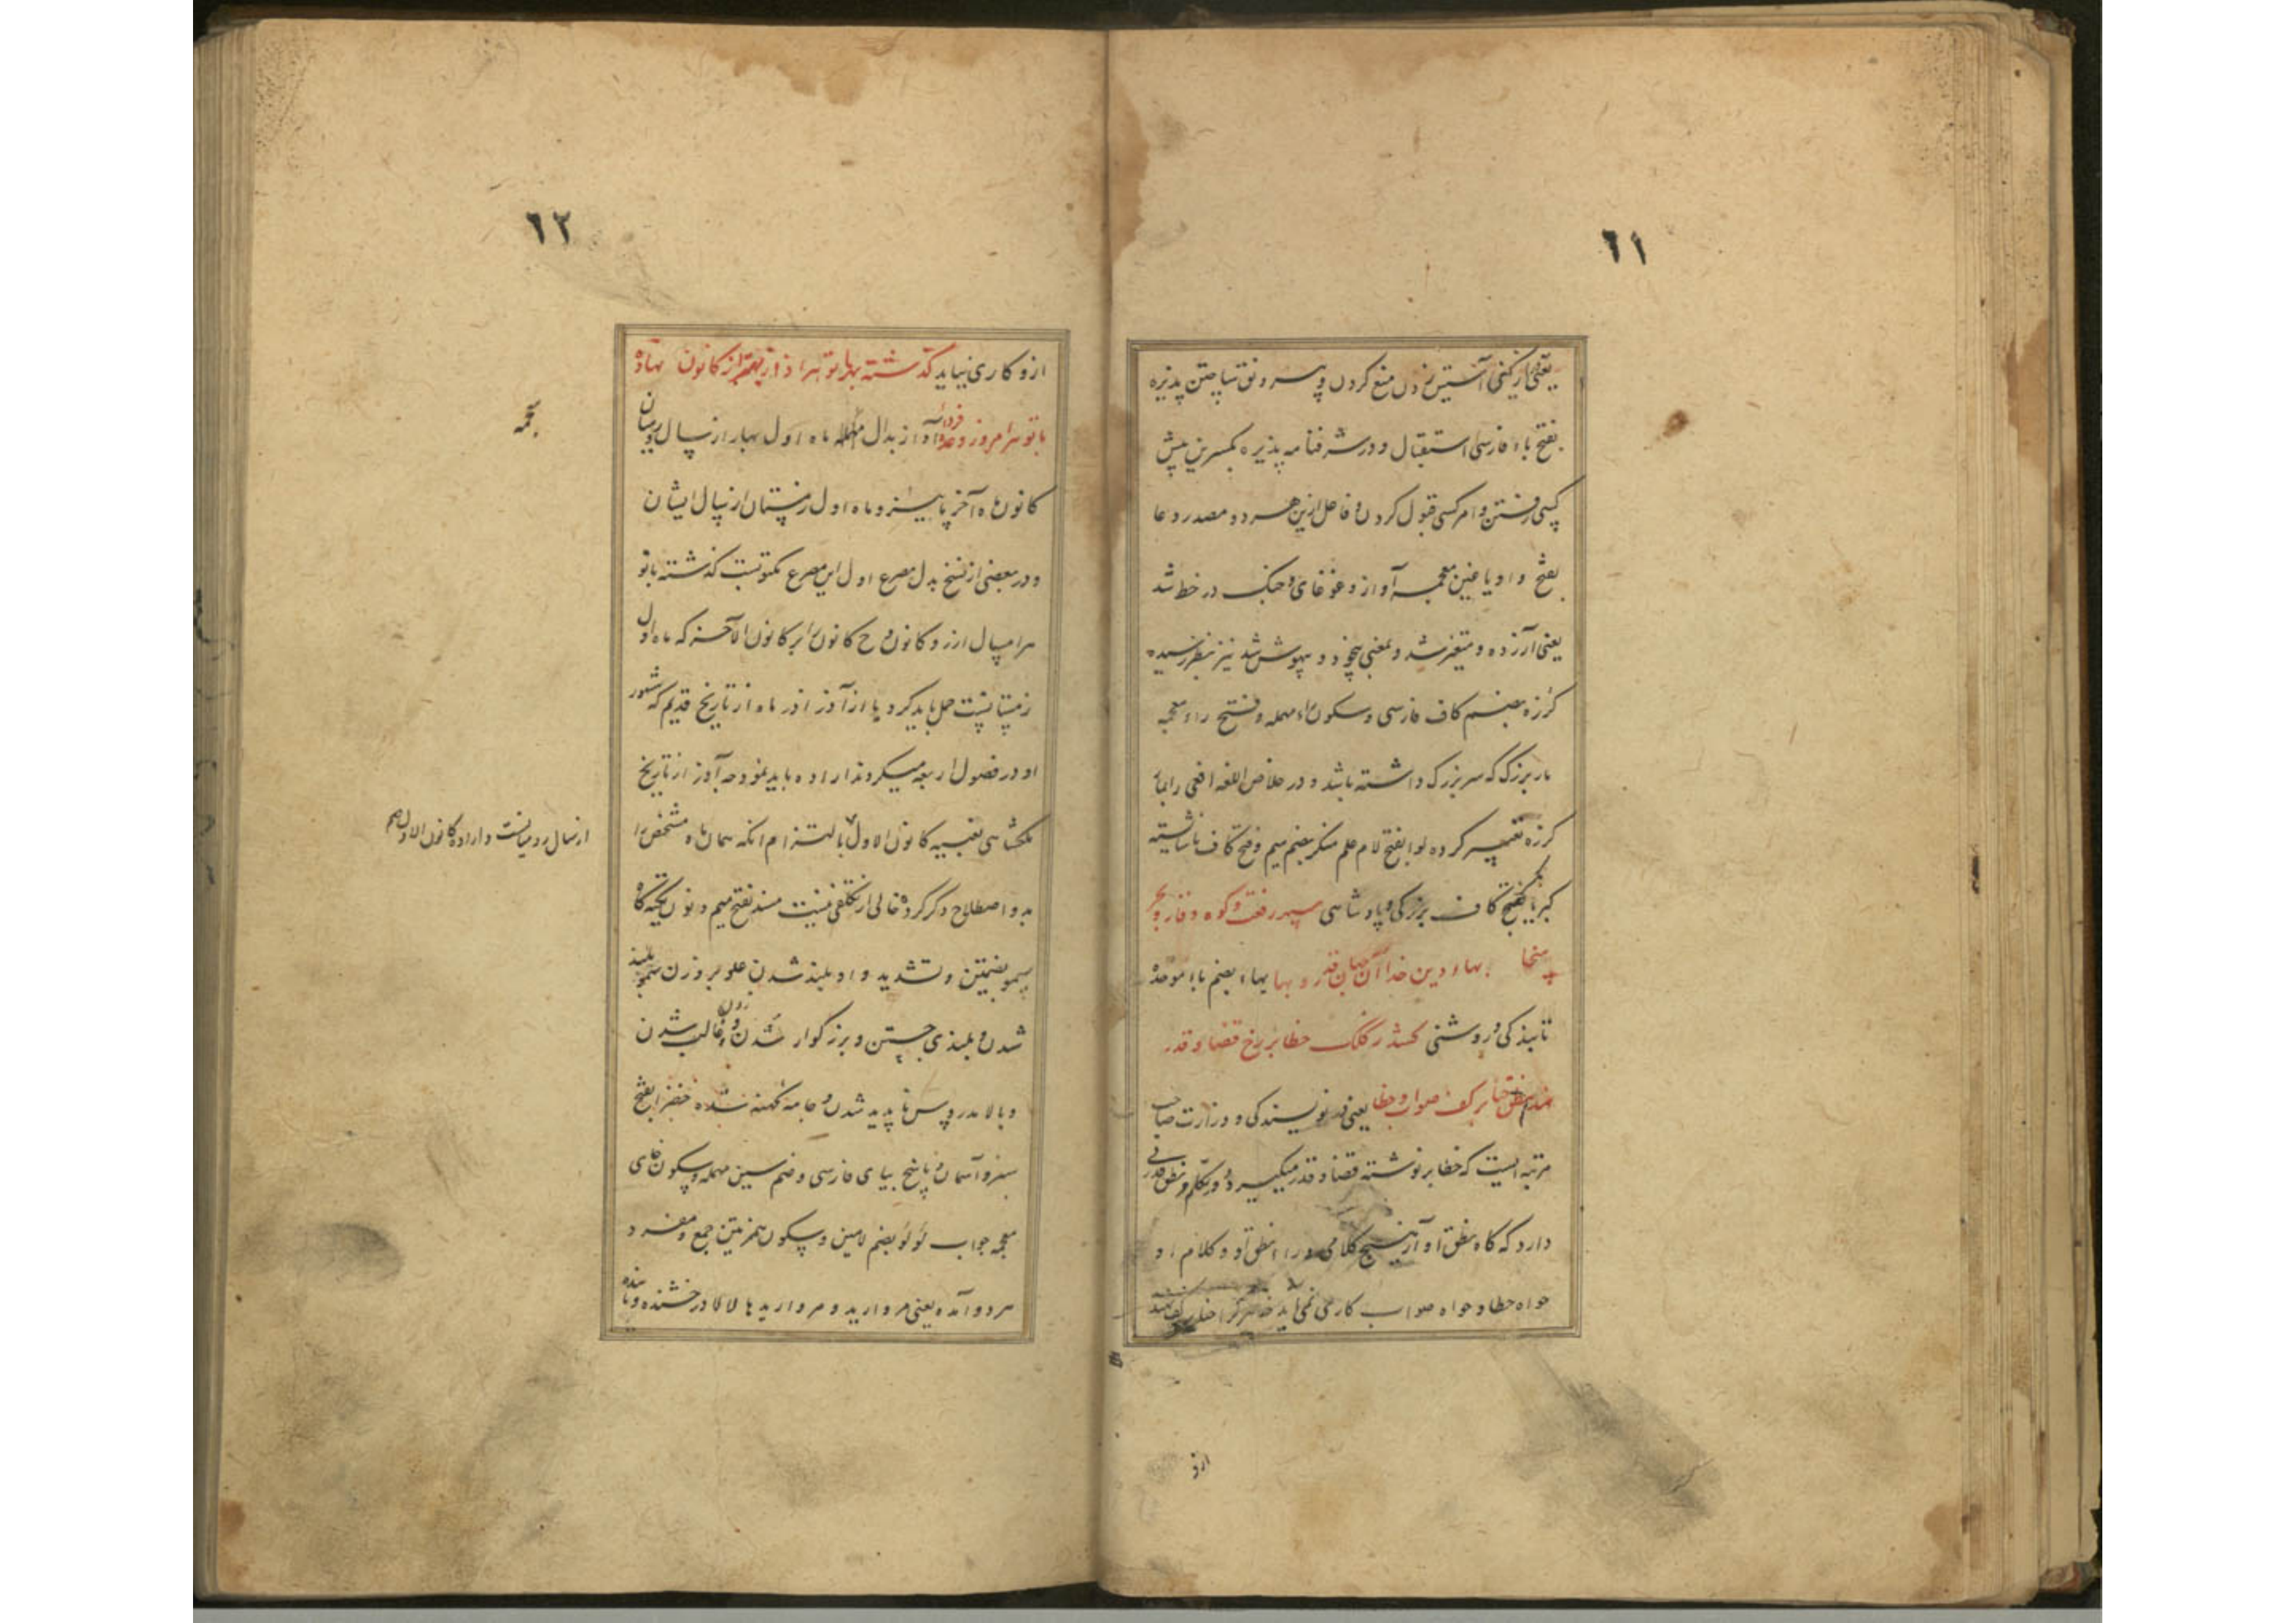 ٦١
یعنی آستین زدن منع کردن و پس رونق ساختن پذیره
بفتح باء فارسی استقبال و در شرفنامه پذیره بکسرتین پیش
کسی رفتن و امر کسی قبول کردن و فاعل ازین هر دو مصدر و عا
بفتح واو یا غین معجمه آواز و غوغای و جنگ در خط شد
یعنی آزرده و متغیر شد و بمعنی بیخود و بیهوش شد نیز بنظر رسیده
کرزه بضم کاف فارسی و سکون راء مهمله و فتح زاء معجمه
مار بزرگ که سر بزرگ داشته باشد و در خلاص اللغه افعی را بمار
کرزه تفسیر کرده لوا بفتح لام علم منکر بضم میم و فتح کاف ناشایسته
کبریا بکسر کاف بزرگی و پادشاهی سپهر رفعت و کوه وقار و بحر
سخا بهاء دین خدا آن جهان قدر و بها بهاء بضم باء موحده
تابندگی و روشنی کشد ز کلک خطا بر رخ قضا و قدر
یعنی در نویسندگی و وزارت صاحب
مرتبه ایست که خطا بر نوشته قضا و قدر میگیرد و در تکلم و نطق قدرتی
دارد که گاه نطق او هیچ کلامی ورا نطق او و کلام او
خواه خطا و خواه صواب کاری نمی آید
ازو
٦٢
ازو کاری نیاید گذشته بهار تو را ز کانون نهاده
با تو سرا مروز وعده فردا آذار بدال مهمله ماه اول بهار از سال رومیان
کانون ماه آخر پاییز و ماه اول زمستان از سال ایشان
و در بعضی از نسخ بدل مصرع اول این مصرع مکتوبست گذشته با تو
سرا مسال ازرو کانون ح کانون بر کانون الآخر که ماه اول
زمستانست حمل باید کرد یا از آذر آذر ماه از تاریخ قدیم که شهور
او در فصول اربعه میکردند اراده باید نمود چه آذر از تاریخ
ملکشاهی بقبیه کانون الاول بالتزام انکه همان ماه مشخص را
بدو اصطلاح ذکر کرده خالی از تکلفی نیست مسند بفتح میم و نون تکیه گاه
سمو بضمتین و تشدید واو بلند شدن علو بر وزن سمو بلند
شدن و بلندی جستن و بزرگوار شدن و غالب شدن
و بالا بدر و پس ناپدید شدن و جامه کهنه شده خضرا بفتح
سبز و آسمان پاسخ ببای فارسی و ضم سین مهمله و سکون خای
معجمه جواب لؤلؤ بضم لامین و سکون همزتین جمع و مفرد
هر دو آمده یعنی مروارید و مرواریدها لالا درخشنده و تابنده
معجمه
از سال رومیانست و اراده کانون الاول هم